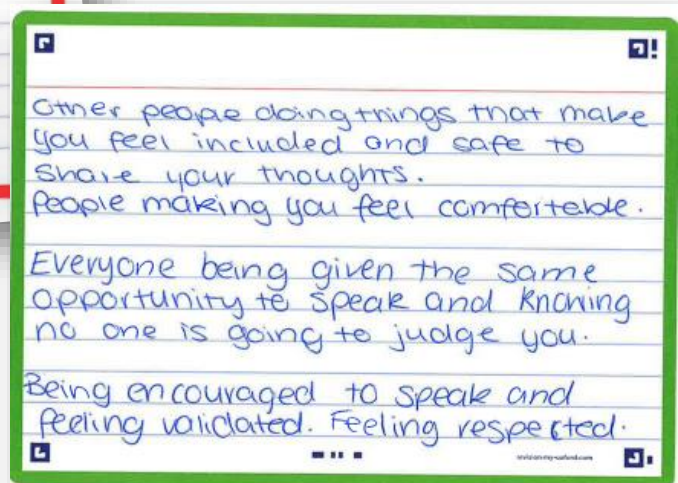 Other people doing things that make
you feel included and safe to
share your thoughts.
People making you feel comfortable.
Everyone being given the same
opportunity to speak and knowing
no one is going to judge you.
Being encouraged to speak and
feeling validated. Feeling respected.